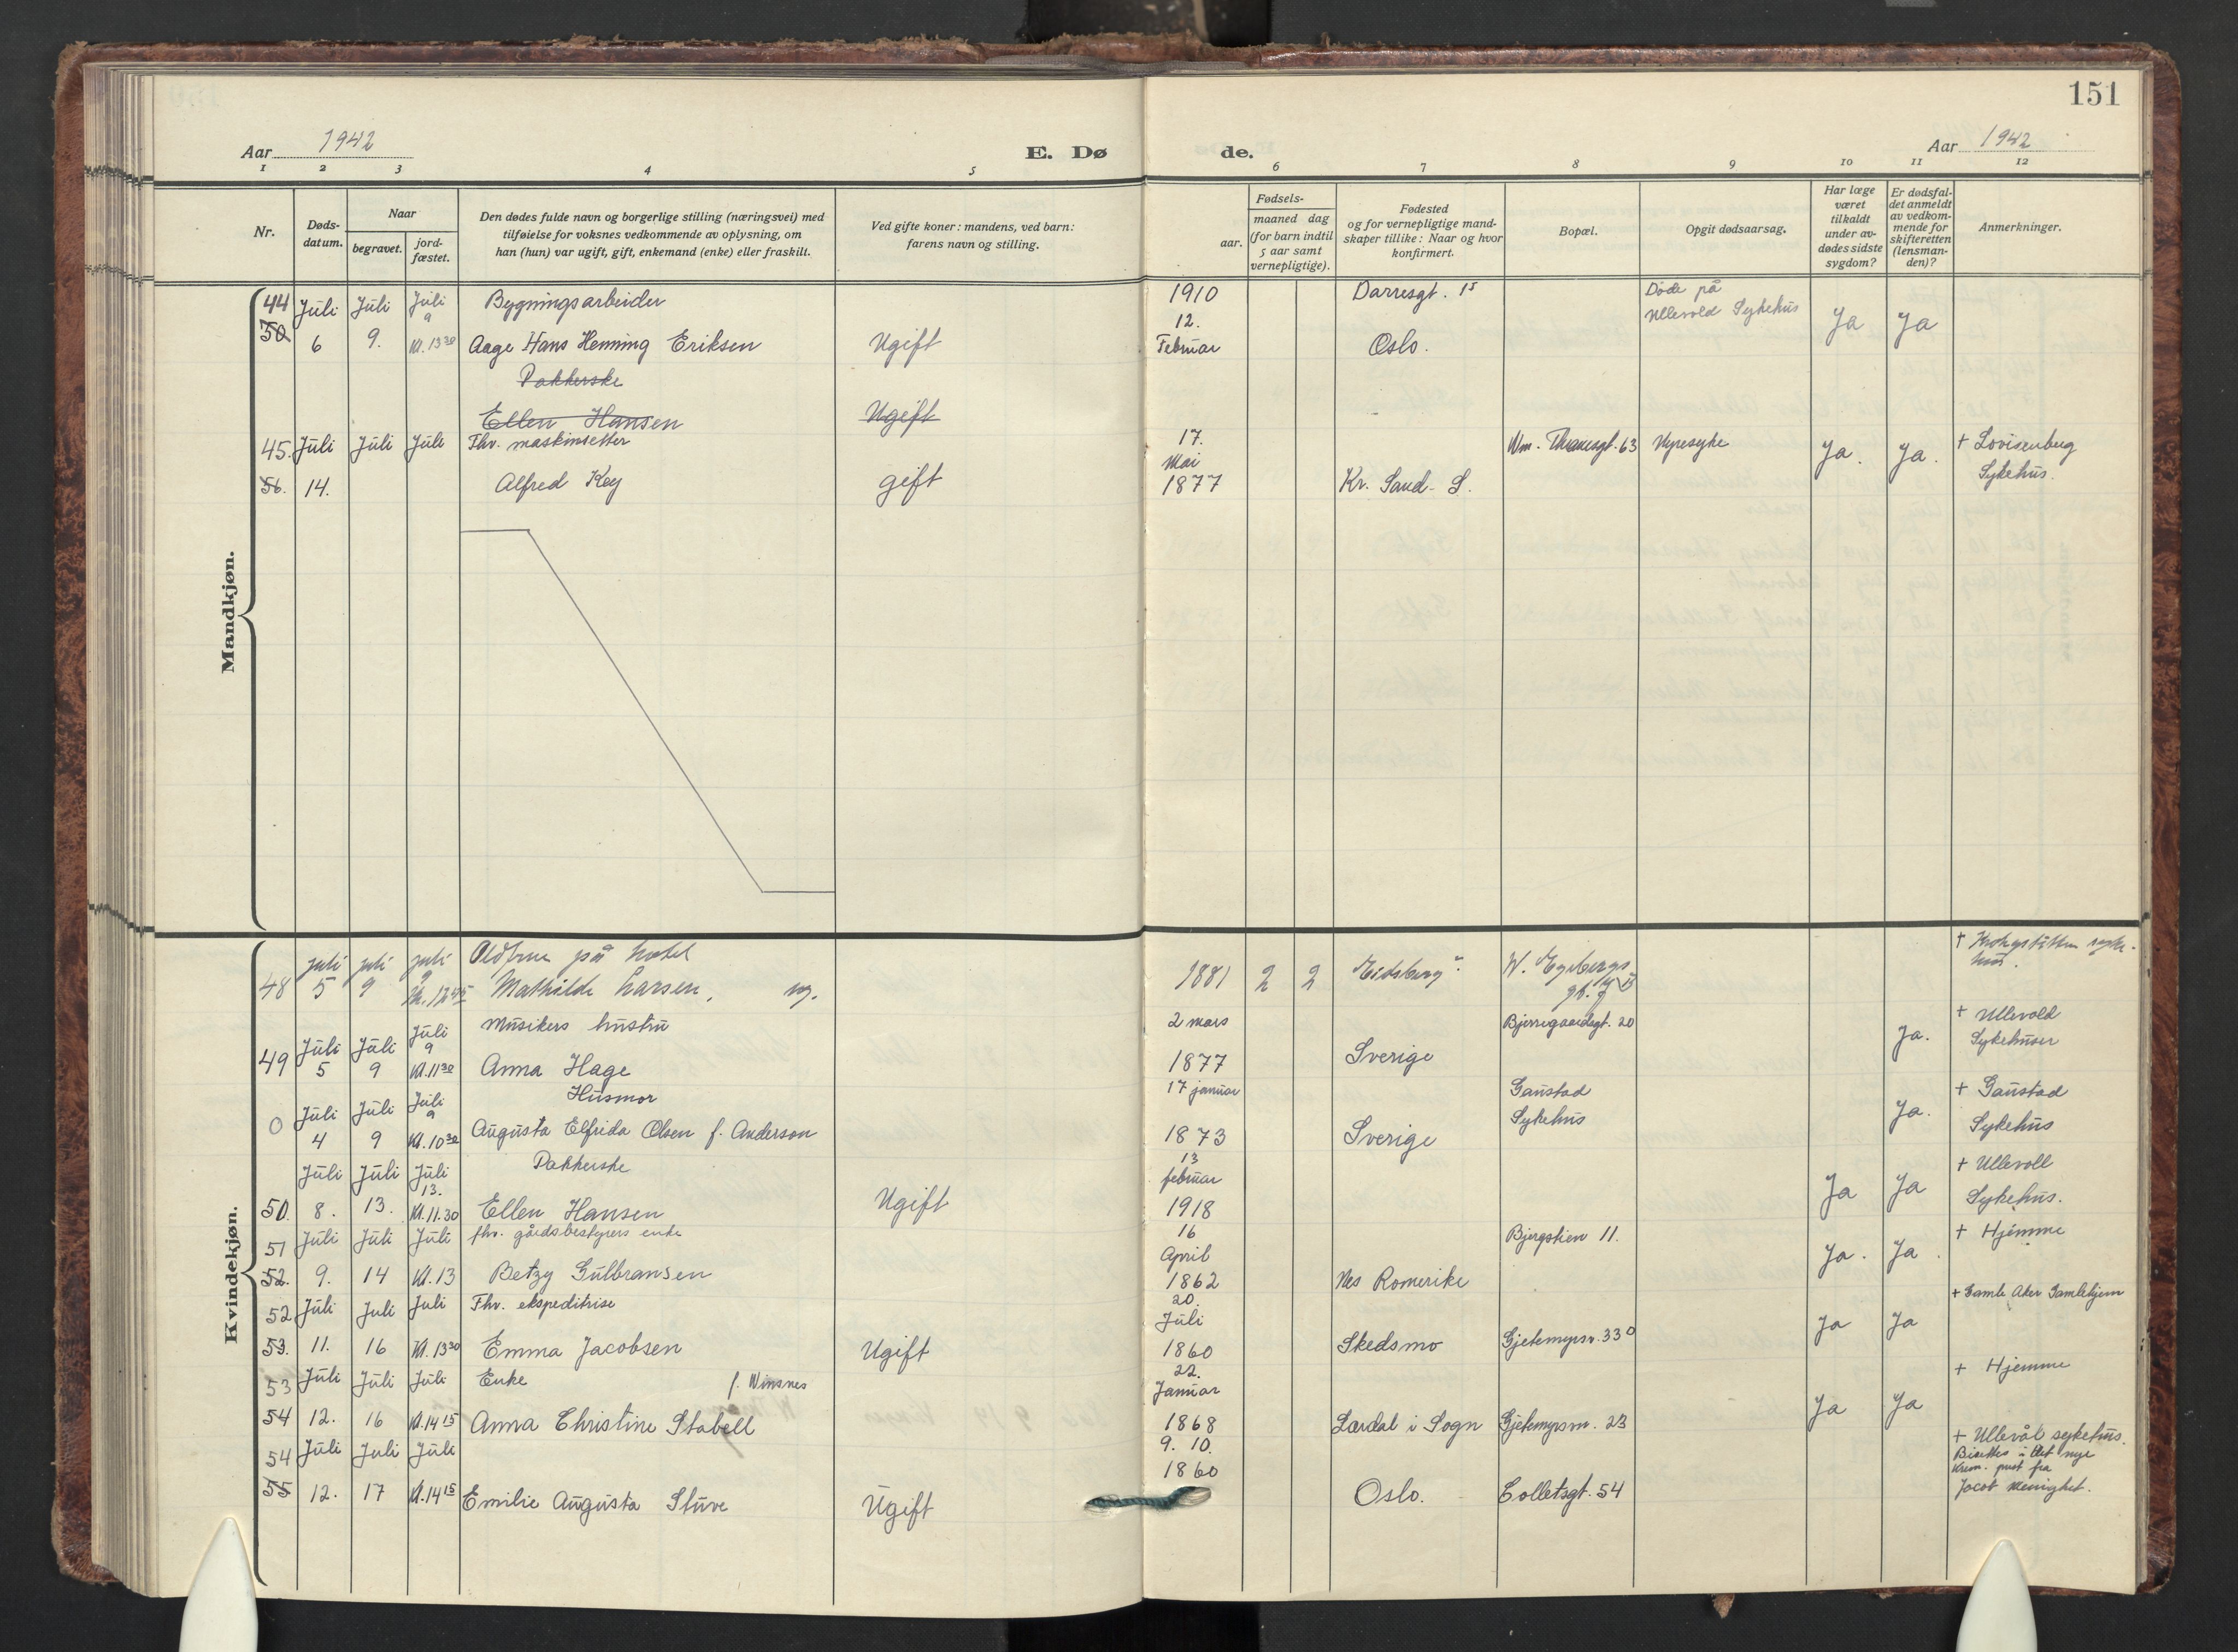 151
Aar 1942
E. Dø
de.
Aar 1942
1 2 3 4 5 6 7 8 9 10 11 12
Nr.
Døds-
datum.
Naar
begravet.
jord-
fæstet.
Den dødes fulde navn og borgerlige stilling (næringsvei) med
tilføielse for voksnes vedkommende av oplysning, om
han (hun) var ugift, gift, enkemand (enke) eller fraskilt.
Ved gifte koner: mandens, ved barn:
farens navn og stilling.
Fødsels-
aar.
maaned dag
(for barn indtil
5 aar samt
vernepligtige).
Fødested
og for vernepligtige mand-
skaper tillike: Naar og hvor
konfirmert.
Bopæl.
Opgit dødsaarsag.
Har læge
været
tilkaldt
under av-
dødes sidste
sygdom?
Er dødsfal-
det anmeldt
av vedkom-
mende for
skifteretten
(lensman-
den)?
Anmerkninger.
Mandkjøn.
44 Juli Juli Juli Bygningsarbeider 1910 Darresgt. 15 Døde på
9 12. Ullevold Sykehus Ja Ja
50 6 9. Kl. 13 30 Aage Hans Henning Eriksen Ugift Februar Oslo.
Pakkerske
Ellen Hansen Ugift
45. Juli Juli Juli Fhv. maskinsetter 17. Wm. Thranesgt. 63 Nyresyke Ja. Ja. + Lovisenberg
Mai Sykehus.
56. 14. Alfred Key gift 1877 Kr. Sand. S.
Kvindekjøn.
juli juli juli Oldfrue på hotel + Krohgstøtten syke-
hus.
48 5 9 9 Kl. 12 45 Mathilde Larsen, ug. 1881 2 2 Eidsberg
Juli Musikers hustru 2 mars Bjerregaardsgt. 20 + Ullevold
Juli Juli 9 Ja. Sykehuser
49 5 9 Kl. 11 30 Anna Hage 1877 Sverige
Juli Husmor 17 januar Gaustad + Gaustad
Juli Juli 9 Sykehus Ja. Sykehus
0 4 9 Kl. 10 30 Augusta Elfrida Olsen f. Anderson 1873 Sverige
Juli Juli Juli Pakkerske 13 + Ullevoll
13. februar Ja Ja Sykehus.
50. 8. 13. Kl. 11.30 Ellen Hansen Ugift 1918
51 Juli Juli Juli fhv. gårdsbestyrers enke 16 Bjergstien 11. + Hjemme
April Ja. Ja.
52. 9. 14 Kl. 13 Betzy Gulbransen 1862 Nes Romerike
52 Juli Juli Juli Fhv. ekspeditrise 20. + Gamle Aker Gamlehjem
Juli Ja Ja
53. 11. 16 Kl. 13 30 Emma Jacobsen Ugift 1860 Skedsmo Gjetemyrsv. 33
53 Juli Juli Juli Enke f. Winsnes 22. + Hjemme
Januar Ja Ja
54 12. 16 Kl. 14 15 Anna Christine Stabell 1868 Lærdal i Sogn Gjetemyrsv. 23
54 Juli Juli Juli 9. 10. + Ullevål sykehus.
1860 Bisettes i Det nye
Krem. prest fra
55 12. 17 Kl. 14 15 Emilie Augusta Stuve Ugift Oslo. Colletsgt. 54 Jacob Menighet.